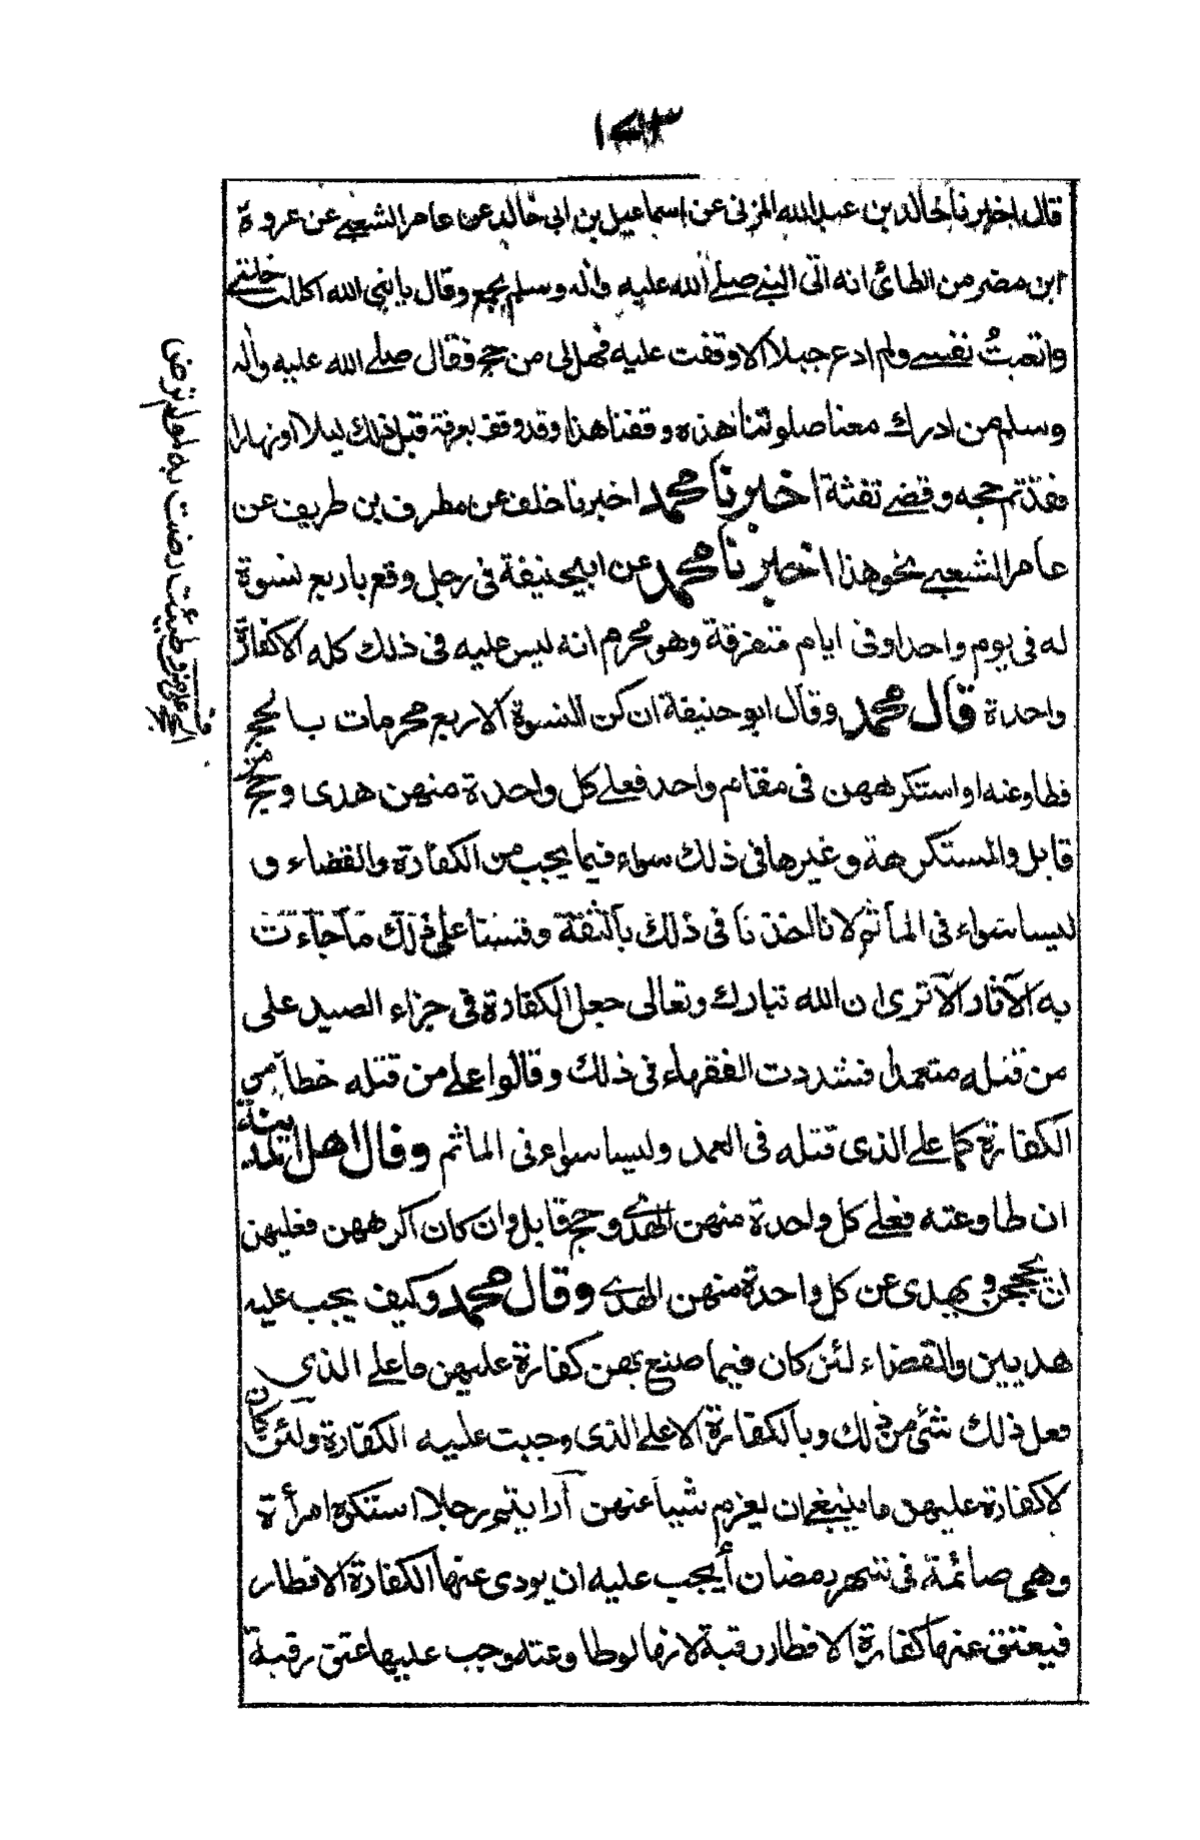 ١٤٣
قال اخبرنا خالد بن عبد الله المزنى عن اسماعيل بن ابى خالد عن عامر الشعبى عن عروة
ابن مضرس الطائى انه اتى النبى صلى الله عليه واله وسلم بجمع وقال يا نبى الله اكللت خلتى
واتعبتُ نفسى ولم ادع جبلا الا وقفت عليه فهل لى من حج فقال صلى الله عليه واله
وسلم من ادرك معنا صلوتنا هذه وقفنا هذا وقد وقف بعرفة قبل ذلك ليلا او نهارا
فقد تم حجه وقضى تفثة اخبرنا محمد اخبرنا خلف عن مطرف بن طريف عن
عامر الشعبى بنحو هذا اخبرنا محمد عن ابى حنيفة فى رجل وقع باربع نسوة
له فى يوم واحد او فى ايام متفرقة وهو محرم انه ليس عليه فى ذلك كله الا كفارة
واحدة قال محمد وقال ابو حنيفة ان كن النسوة الاربع محرمات بالحج
فطاوعنه او استكرههن فى مقام واحد فعلى كل واحدة منهن هدى وحج من
قابل والمستكرهة وغيرها فى ذلك سواء فيما يجب من الكفارة والقضاء و
ليسا سواء فى المأثم لانا اخذنا فى ذلك بالثقة وقسنا على ذلك ما جاءت
به الآثار الا ترى ان الله تبارك وتعالى جعل الكفارة فى جزاء الصيد على
من قتله متعمدا فشددت الفقهاء فى ذلك وقالوا على من قتله خطأ من
الكفارة كما على الذى قتله فى العمد وليسا سواء فى الماثم وقال اهل المدينة
ان طاوعته فعلى كل واحدة منهن الهدى وحج قابل وان كان اكرههن فعليهن
ان يحججن ويهدى عن كل واحدة منهن الهدى وقال محمد وكيف يجب عليه
هديين والقضاء لئن كان فيما صنع بهن كفارة عليهن ما على الذى
فعل ذلك شئ من ذلك وبالكفارة الا على الذى وجبت عليه الكفارة ولئن كان
لا كفارة عليهن ما ينبغى ان يغرم شيئا عنهن أرايتم رجلا استكره امرأة
وهى صائمة فى شهر رمضان أيجب عليه ان يودى عنها الكفارة الافطار
فيعتق عنها كفارة الافطار رقبة لانها لو طاوعته وجب عليها عتق رقبة